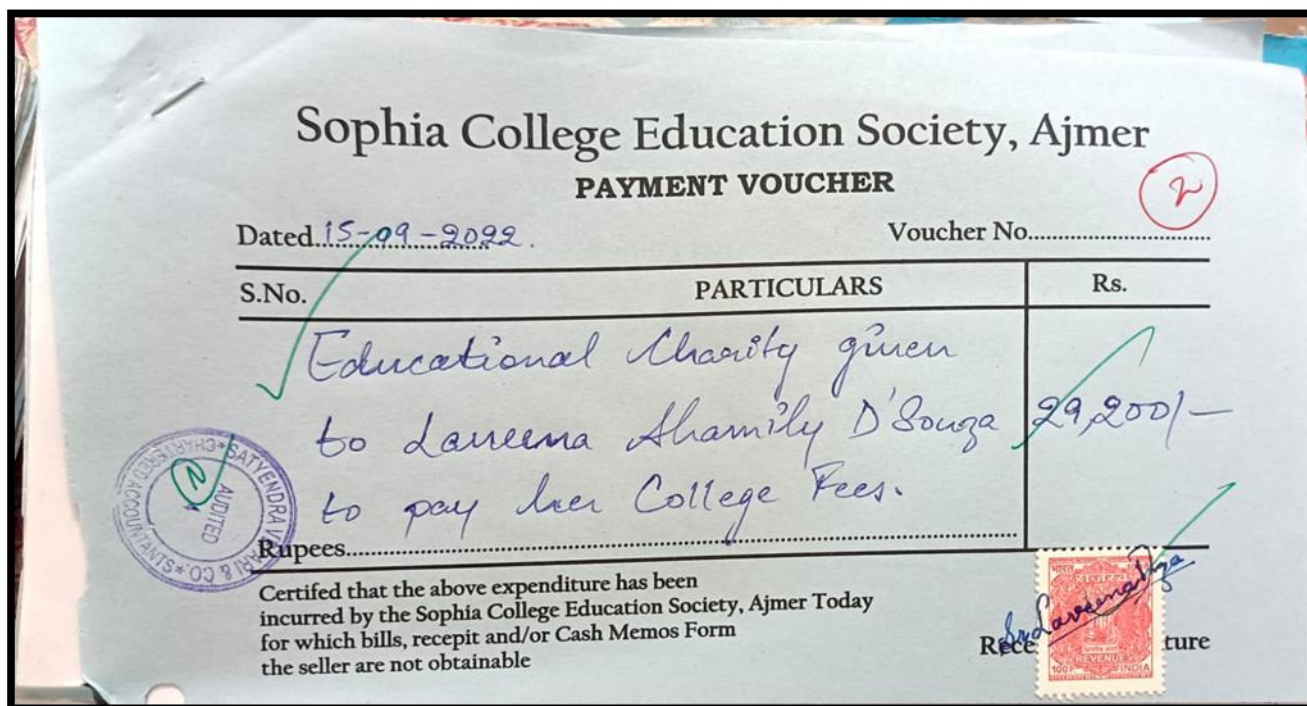 Sophia College Education Society, Ajmer
PAYMENT VOUCHER
2
Dated 15-09-2022. Voucher No
S.No. PARTICULARS Rs.
Educational Charity given
to Laveena Shamily D'Souza 29,200/-
to pay her College Fees.
Rupees
SATYENDRA & CO. * CHARTERED ACCOUNTANTS *
AUDITED
Certifed that the above expenditure has been
incurred by the Sophia College Education Society, Ajmer Today
for which bills, recepit and/or Cash Memos Form
the seller are not obtainable
भारत
राजस्व
Sr Laveena
REVENUE
100P. INDIA